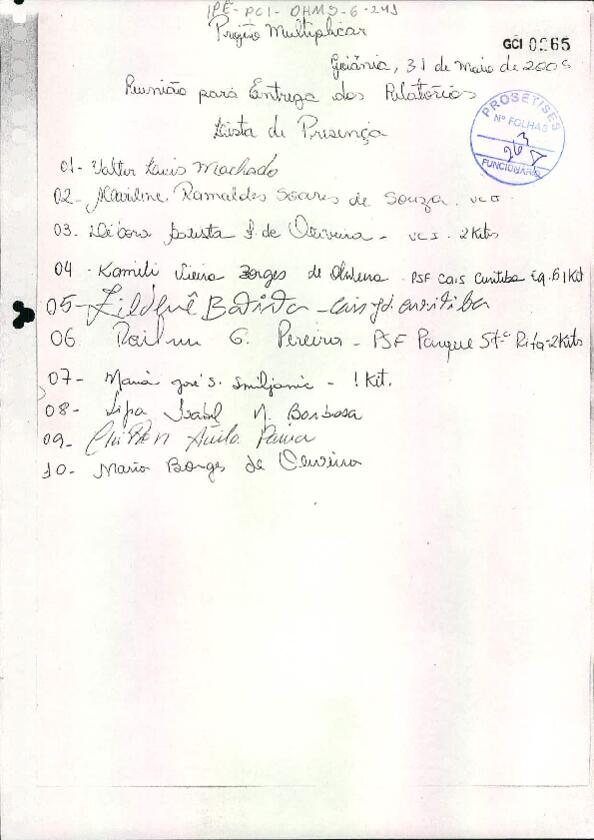 IPÊ-PCI-OHMS-6-241
Projeto Multiplicar
GCI 0265
Goiânia, 31 de maio de 200
Reunião para Entrega dos Relatórios
Lista de Presença
PROSET/SES
Nº FOLHAS
FUNCIONÁRIO
01- Valter Luis Machado
02- Ramaldes Soares de Souza.
03- Débora Batista de Oliveira - 2 Kits
04 - Kamili Vieira Borges de - PSF Cais Curitiba Eq. 6 1 Kit
05- Batista - Cais Jd. Curitiba
06 G. Pereira - PSF Parque Stª Rita-2Kits
07 - Maria José S. - 1 Kit.
08 - Isabel M. Barbosa
09-
10- Maria Borges de Oliveira